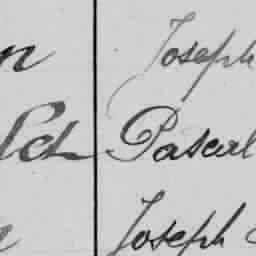 n Joseph
ld Pascal
Joseph